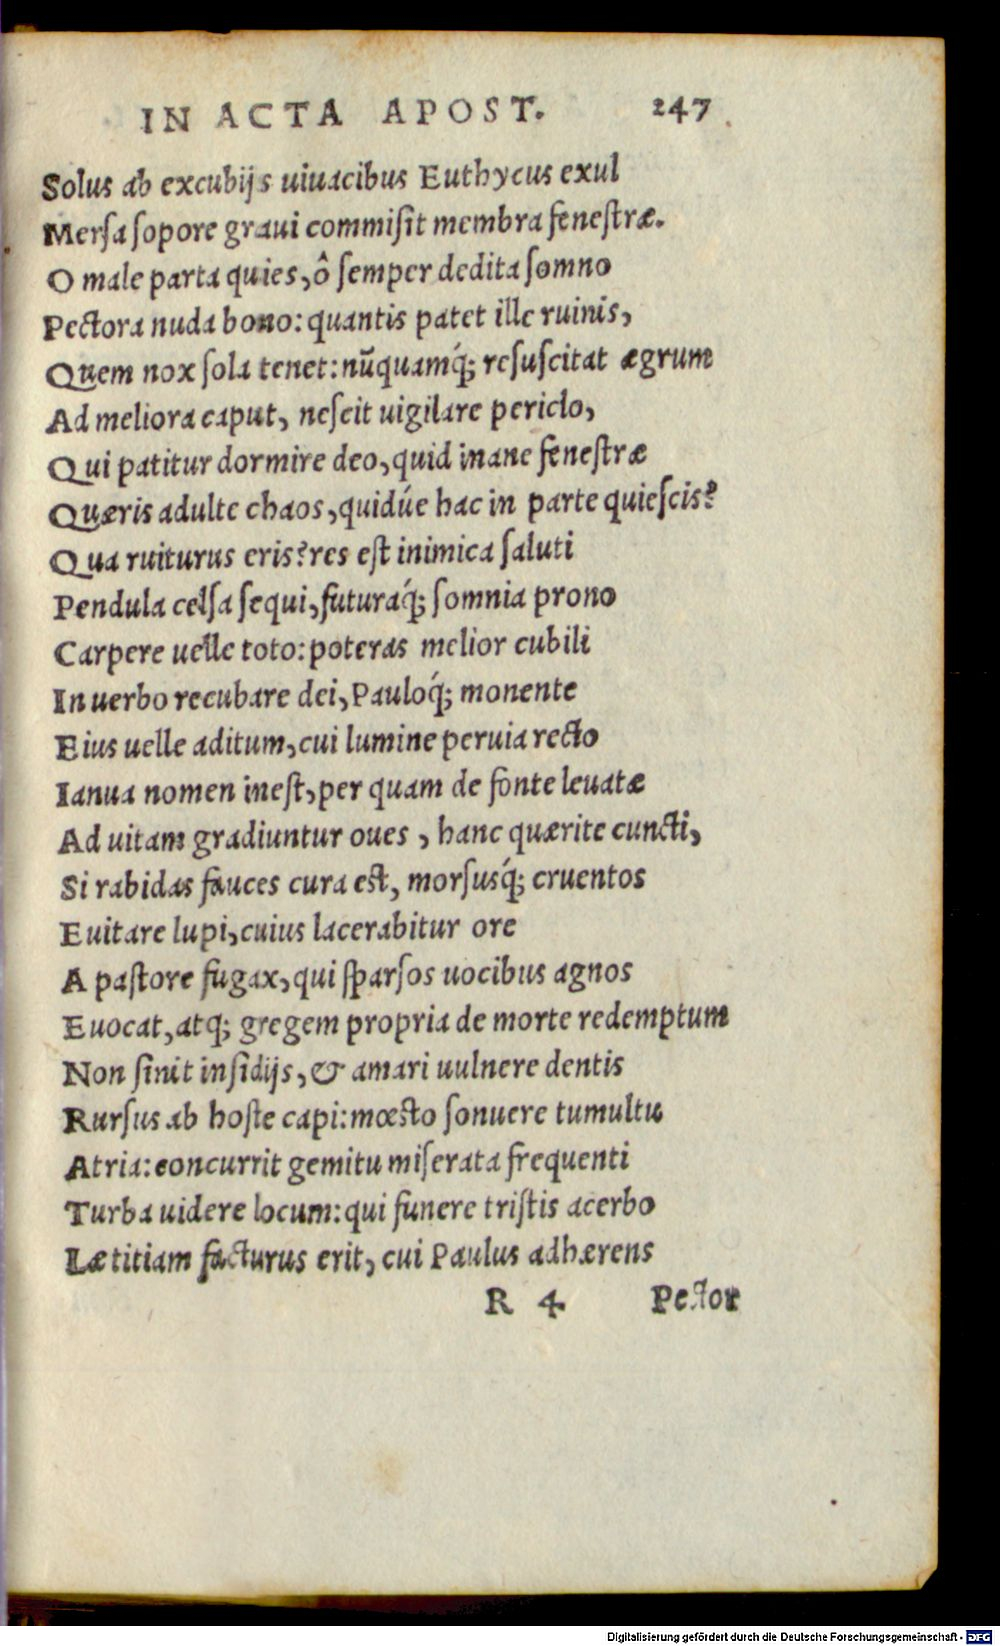 IN ACTA APOST. 247
Solus ab excubijs uiuacibus Euthycus exul
Mersa sopore graui commisit membra fenestræ.
O male parta quies, ô semper dedita somno
Pectora nuda bono: quantis patet ille ruinis,
Quem nox sola tenet: nũquamq́; resuscitat ægrum
Ad meliora caput, nescit uigilare periclo,
Qui patitur dormire deo, quid inane fenestræ
Quæris adulte chaos, quidúe hac in parte quiescis?
Qua ruiturus eris? res est inimica saluti
Pendula celsa sequi, futuraq́; somnia prono
Carpere uelle toto: poteras melior cubili
In uerbo recubare dei, Pauloq́; monente
Eius uelle aditum, cui lumine peruia recto
Ianua nomen inest, per quam de fonte leuatæ
Ad uitam gradiuntur oues, hanc quærite cuncti,
Si rabidas fauces cura est, morsusq́; cruentos
Euitare lupi, cuius lacerabitur ore
A pastore fugax, qui sparsos uocibus agnos
Euocat, atq; gregem propria de morte redemptum
Non sinit insidijs, & amari uulnere dentis
Rursus ab hoste capi: mœsto sonuere tumultu
Atria: concurrit gemitu miserata frequenti
Turba uidere locum: qui funere tristis acerbo
Lætitiam facturus erit, cui Paulus adhærens
R 4 Pector
Digitalisierung gefördert durch die Deutsche Forschungsgemeinschaft - DFG